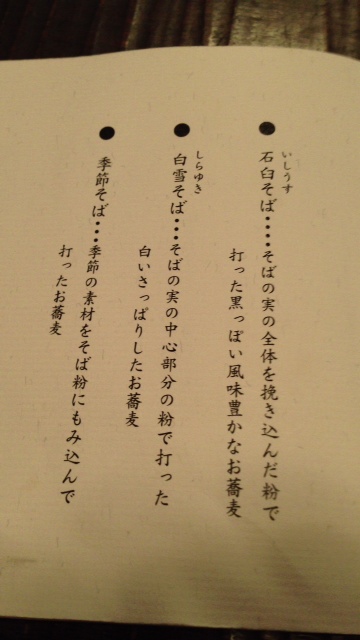 いしうす
●石臼そば････そばの実の全体を挽き込んだ粉で
打った黒っぽい風味豊かなお蕎麦
しらゆき
●白雪そば････そばの実の中心部分の粉で打った
白いさっぱりしたお蕎麦
●季節そば････季節の素材をそば粉にもみ込んで
打ったお蕎麦